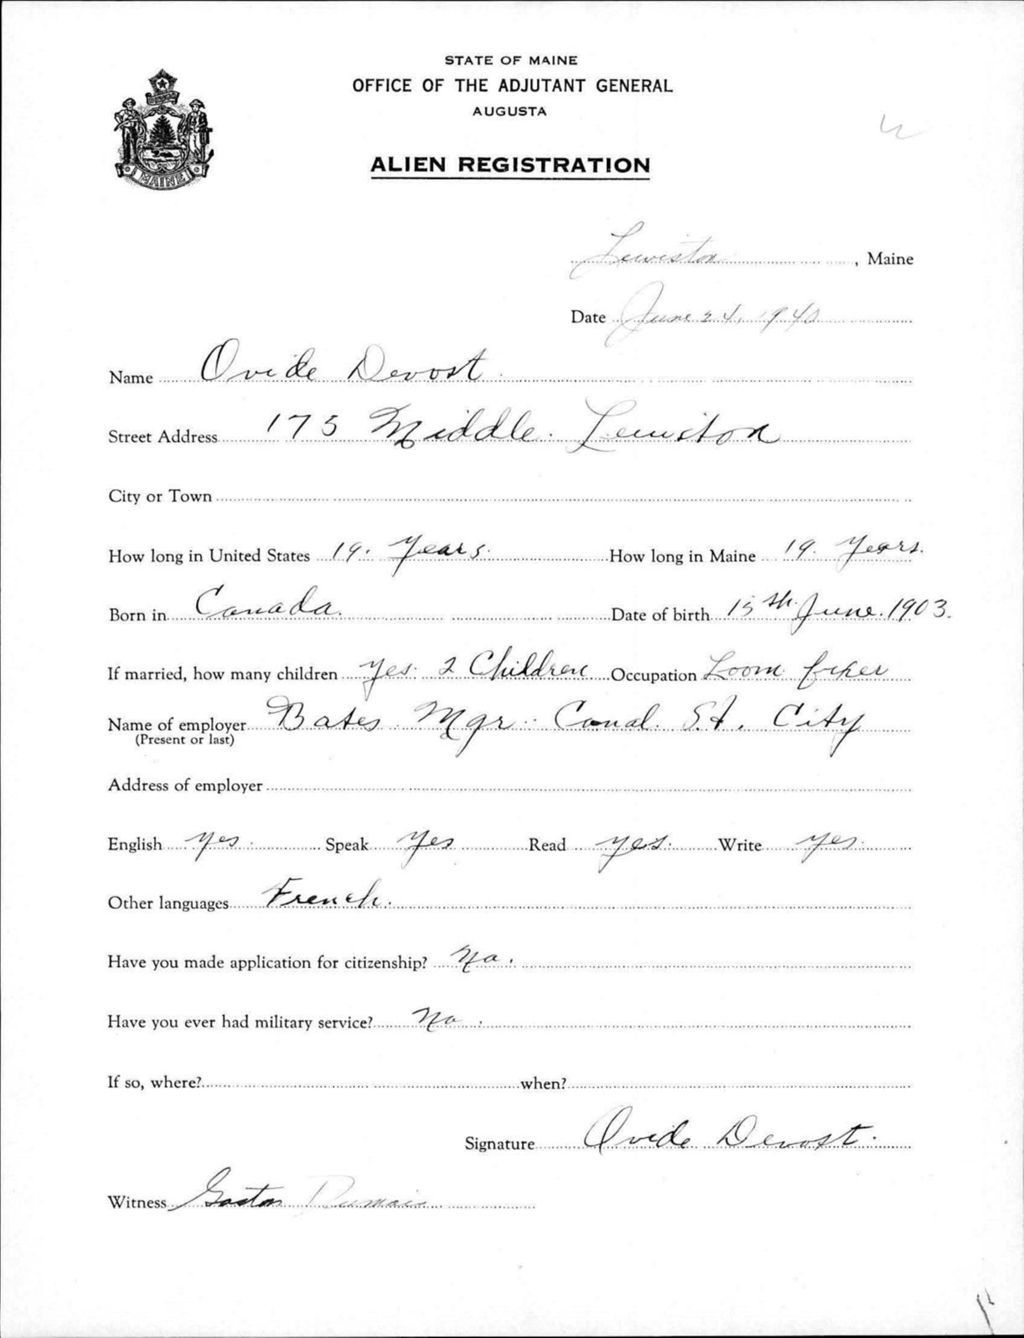 STATE OF MAINE
OFFICE OF THE ADJUTANT GENERAL
AUGUSTA
ALIEN REGISTRATION
MAINE
Lewiston, Maine
Date June 24, 1940
Name Ovide Devost
Street Address 175 Middle. Lewiston
City or Town
How long in United States 19. Years. How long in Maine 19. Years.
Born in Canada. Date of birth 15th June. 1903.
If married, how many children Yes. 2 Children Occupation Loom fixer
Name of employer Bates Mgr. Canal. St. City
(Present or last)
Address of employer
English yes. Speak yes Read yes. Write yes.
Other languages French.
Have you made application for citizenship? No.
Have you ever had military service? No.
If so, where? when?
Signature Ovide Devost.
Witness Gaston Dumais